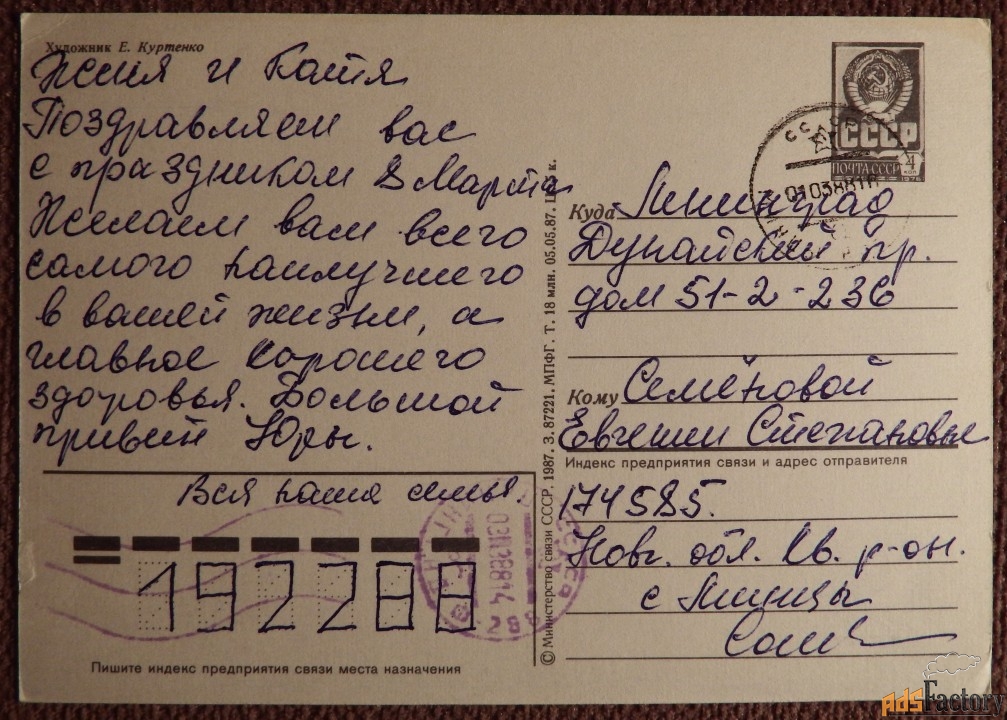 Художник Е. Куртенко
Женя и Катя
Поздравляем вас
с праздником 8 Марта
Желаем вам всего
самого наилучшего
в вашей жизни, а
главное хорошего
здоровья. Большой
привет Юры.
Вся наша семья.
192288
Пишите индекс предприятия связи места назначения
© Министерство связи СССР. 1987. З. 87221. МПФГ. Т. 18 млн. 05.05.87. Ц. к.
СССР
ПОЧТА СССР
4 коп
1978
Куда Ленинград
Дунайский пр.
дом 51-2-236
Кому Семёновой
Евгении Степановне
Индекс предприятия связи и адрес отправителя
174585.
Новг. обл. Хв. р-он.
с Миницы
adsFactory